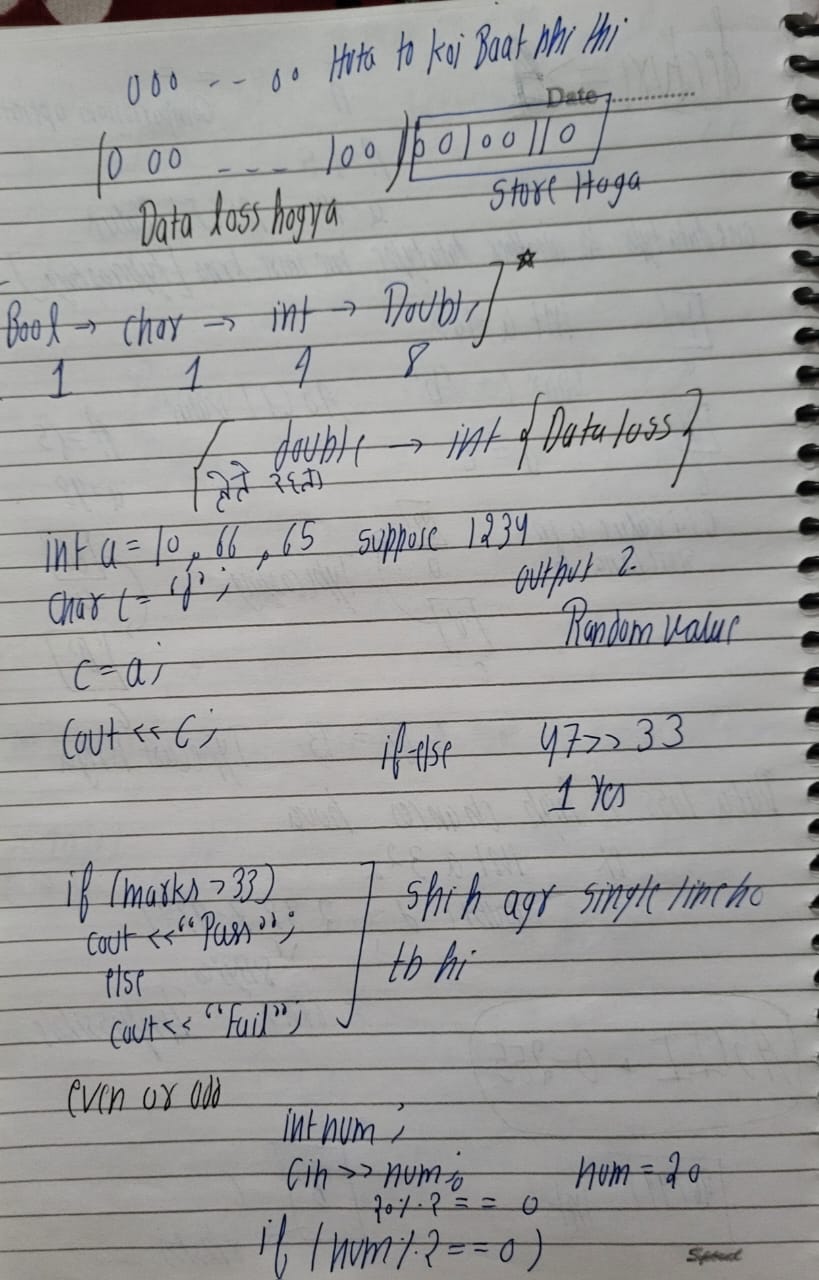 000 -- 00 Hota to koi Baat nhi thi
Date
(0 00 --- 100) 00100110
Store Hoga
Data loss hogya
Bool → char → int → Double] ☆
1 1 4 8
[double → int {Data loss}
int a = 10, 66, 65 suppose 1234
char c = 'd';
output 2.
Random value
c = a;
cout << c;
if else 47>>33
1 Yes
if (marks > 33)
cout << "Pass";
else
cout << "Fail";
shi h agr single line ho
tb hi
even or odd
int num;
cin >> num; num = 20
20%2 == 0
if (num%2 == 0)